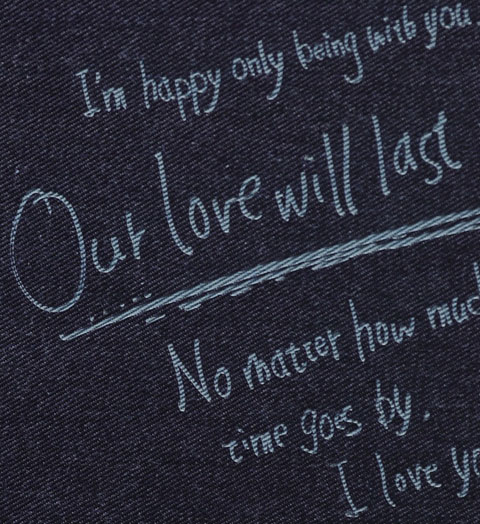 I'm happy only being with you.
Our love will last
No matter how muc
time goes by.
I love yo